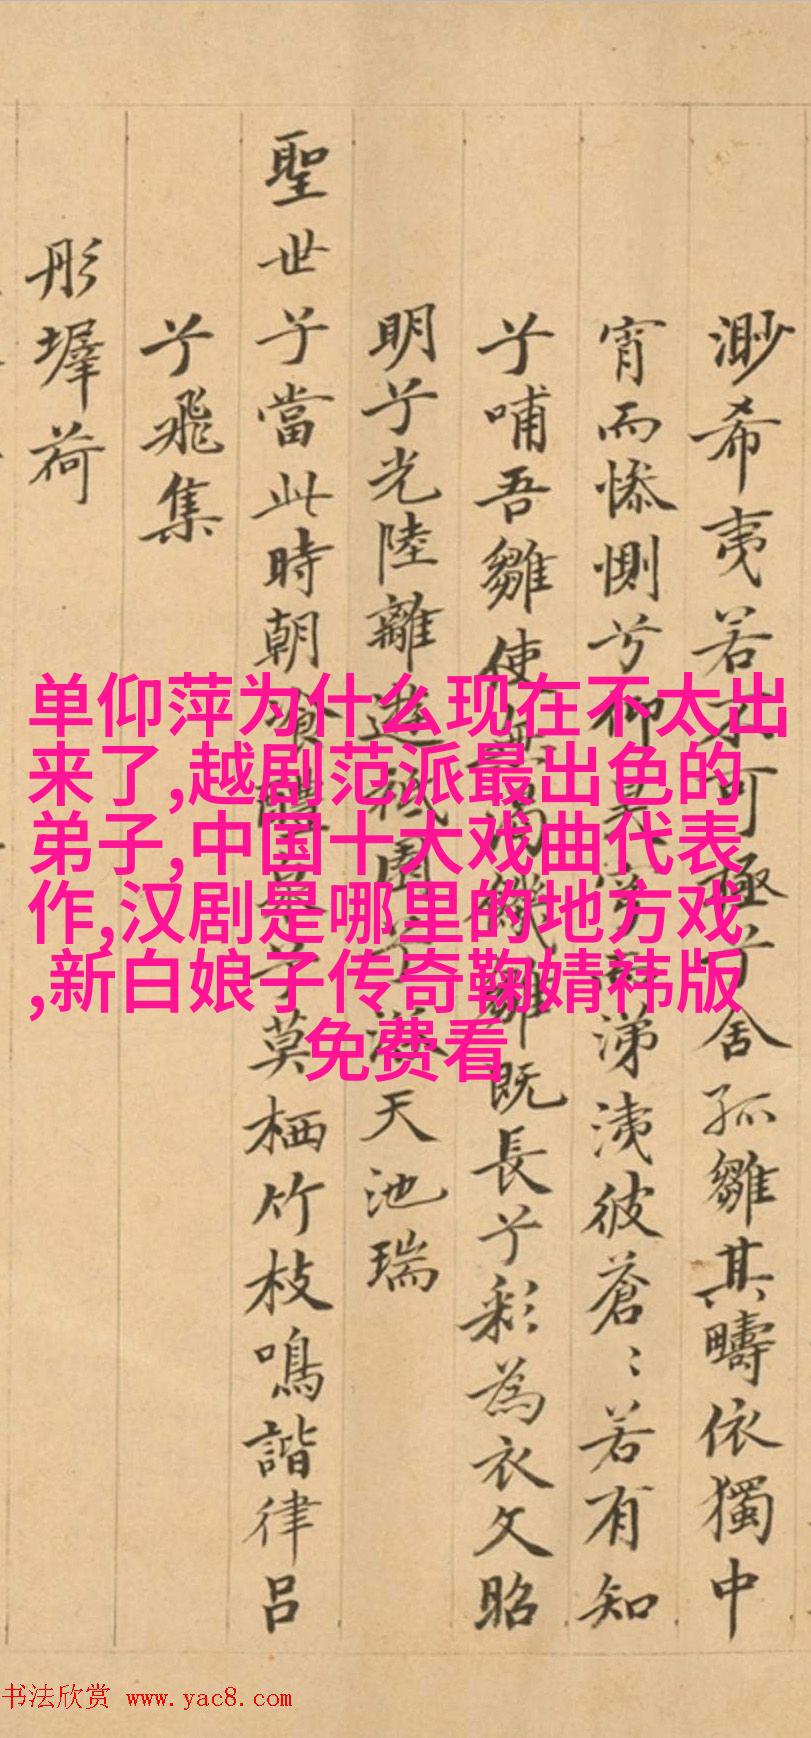 渺希夷若不可極兮舍孤雛其疇依獨中
宵而惨惻兮仰昊穹而涕洟彼蒼〻若有知
兮哺吾雛使無渴饑雛既長兮彩為衣文昭
明兮光陸離遊祇園兮浴天池瑞
聖世兮當此時朝飡醴泉兮莫栖竹枝鳴諧律呂
兮飛集
彤墀荷
单仰萍为什么现在不太出
来了,越剧范派最出色的
弟子,中国十大戏曲代表
作,汉剧是哪里的地方戏
,新白娘子传奇鞠婧祎版
免费看
书法欣赏 www.yac8.com